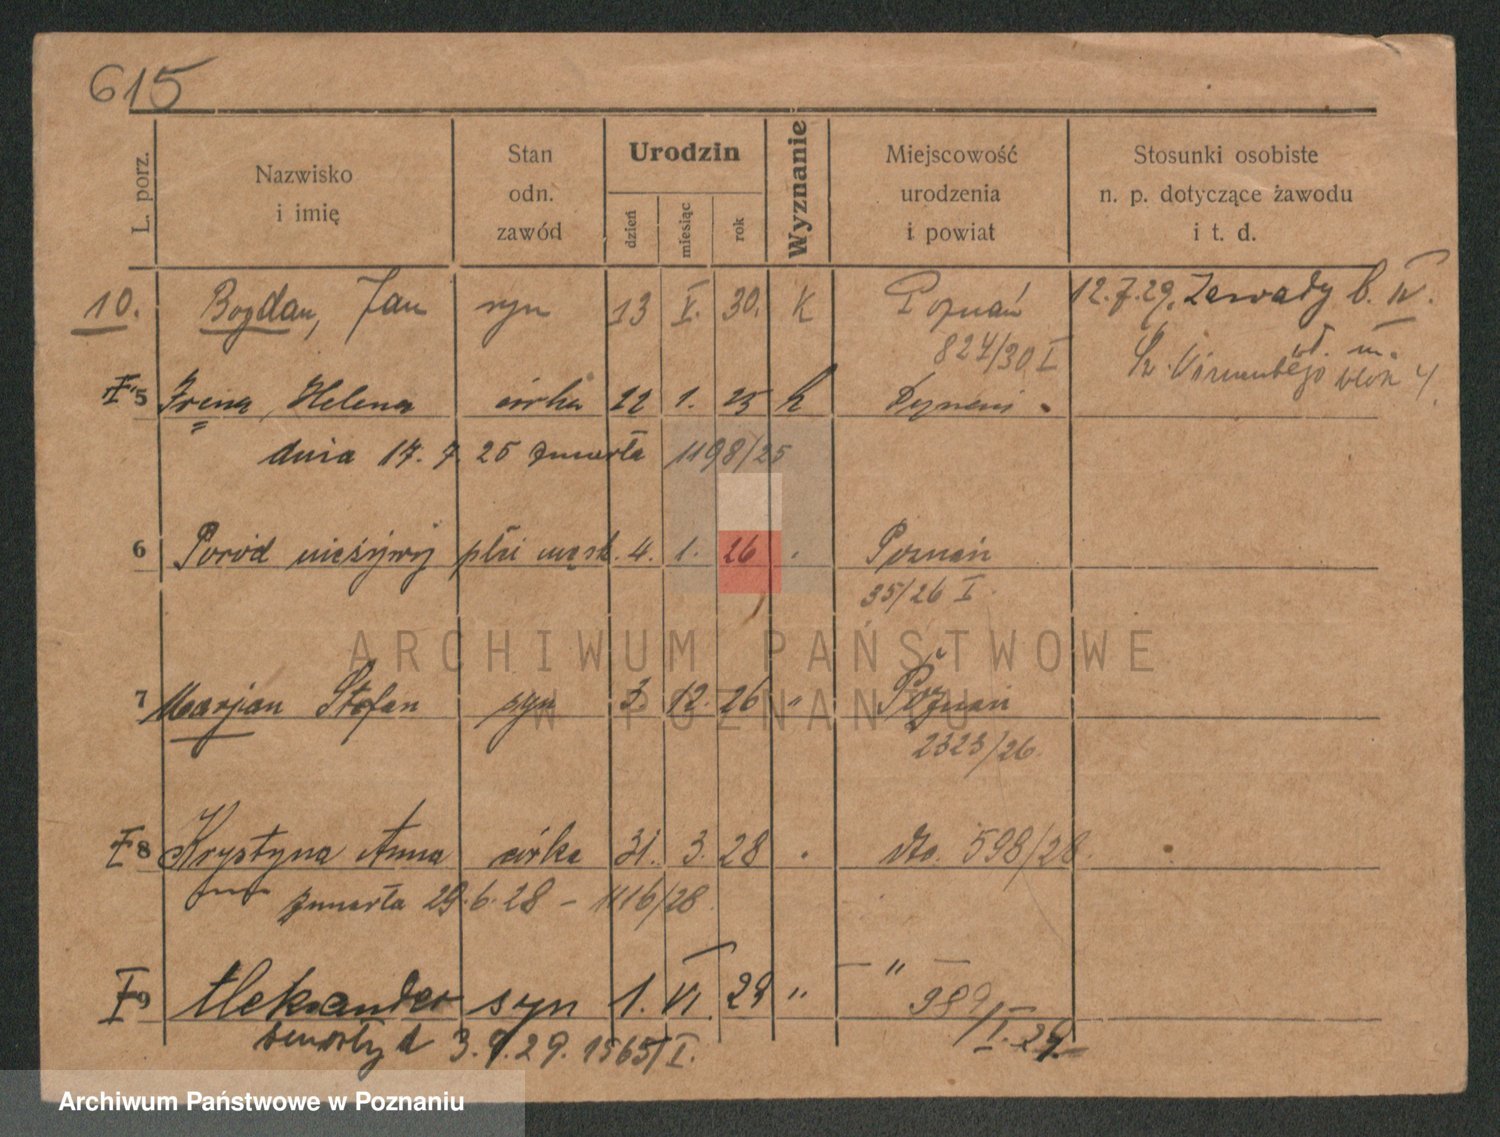 615
L. porz.
Nazwisko
i imię
Stan
odn.
zawód
Urodzin
dzień
miesiąc
rok
Wyznanie
Miejscowość
urodzenia
i powiat
Stosunki osobiste
n. p. dotyczące zawodu
i t. d.
10. Bogdan, Jan syn 13 V. 30. K Poznań 12.7.29. Zawady b. IV.
824/30 I
5 Irena, Helena córka 22 1. 25 k Poznań
dnia 17. 7. 25 zmarła 1198/25
6 Poród nieżywy płci męsk. 4. 1. 26 " Poznań
35/26 I
ARCHIWUM PAŃSTWOWE
W POZNANIU
7 Marjan Stefan syn 3. 12. 26 " Poznań
2323/26
8 Krystyna Anna córka 31. 3. 28 " dto. 598/28
zmarła 29.6.28 - 1116/28
9 Aleksander syn 1. VI 29 " — " —
989/I. 29.
zmarły d 3.9.29. 1565/I.
Archiwum Państwowe w Poznaniu